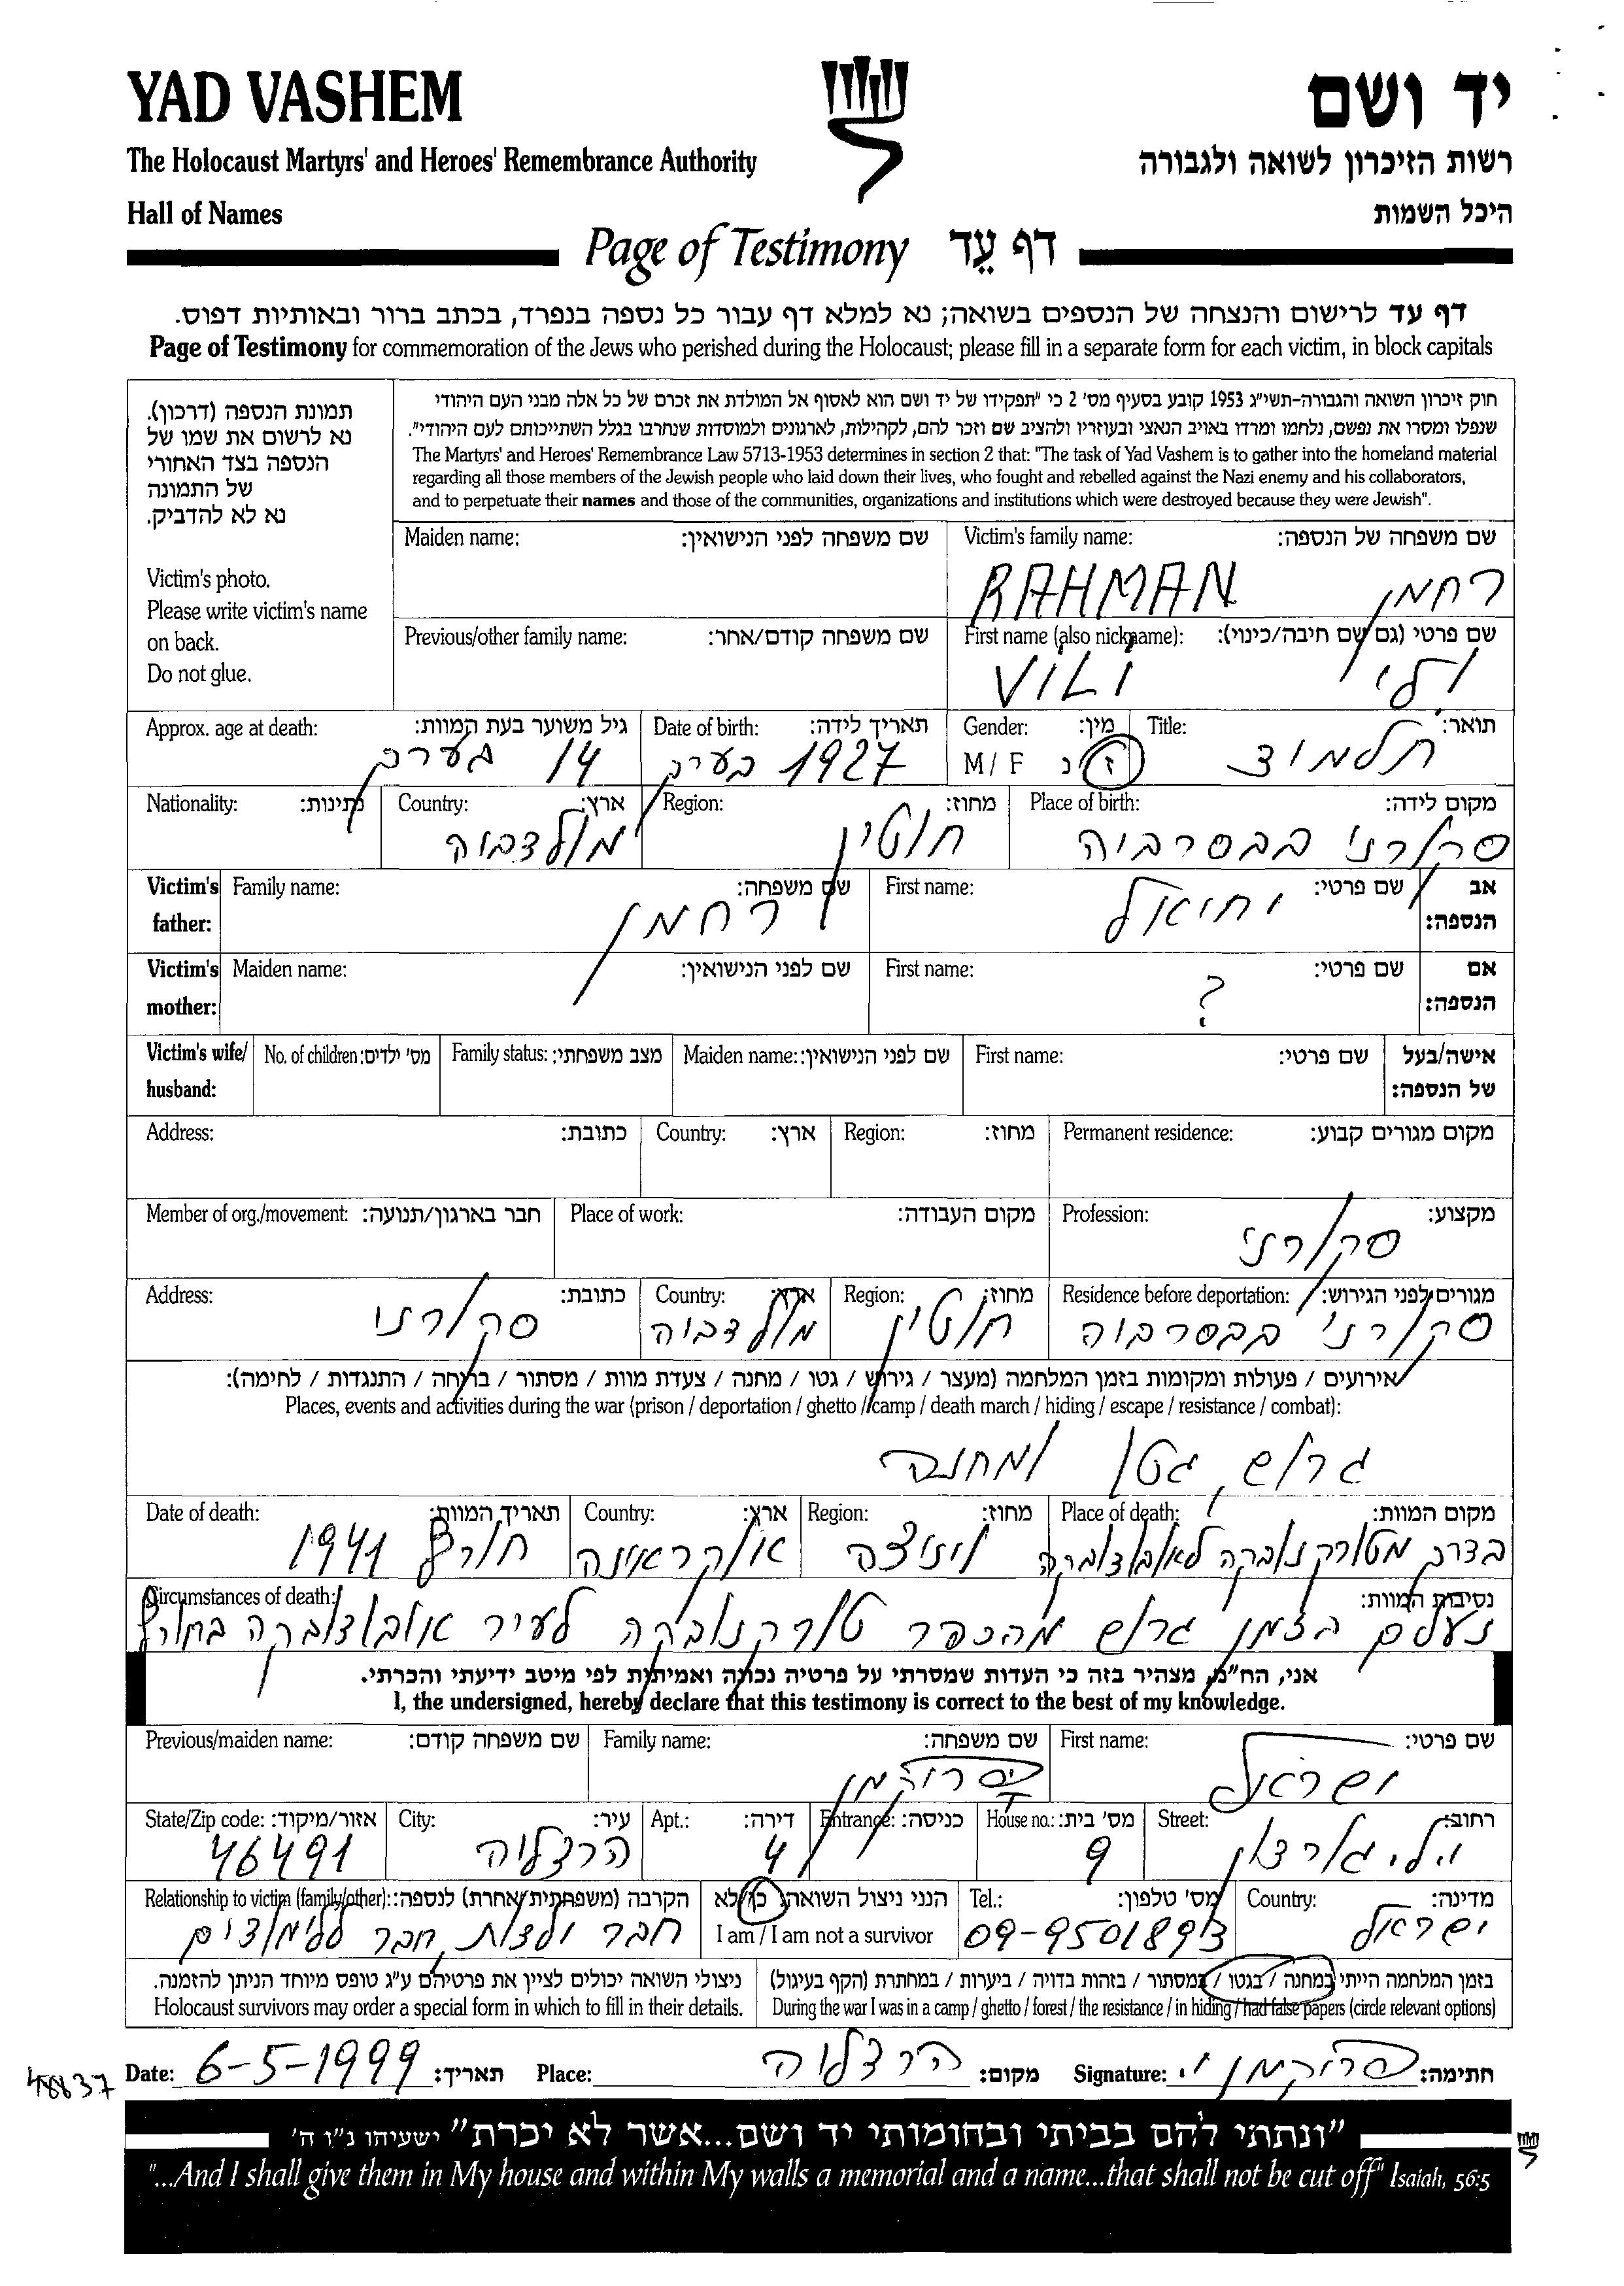 YAD VASHEM יד ושם
The Holocaust Martyrs' and Heroes' Remembrance Authority רשות הזיכרון לשואה ולגבורה
Hall of Names היכל השמות
Page of Testimony דף עֵד
דף עד לרישום והנצחה של הנספים בשואה; נא למלא דף עבור כל נספה בנפרד, בכתב ברור ובאותיות דפוס.
Page of Testimony for commemoration of the Jews who perished during the Holocaust; please fill in a separate form for each victim, in block capitals
תמונת הנספה (דרכון).
נא לרשום את שמו של
הנספה בצד האחורי
של התמונה
נא לא להדביק.
Victim's photo.
Please write victim's name
on back.
Do not glue.
חוק זיכרון השואה והגבורה-תשי"ג 1953 קובע בסעיף מס' 2 כי "תפקידו של יד ושם הוא לאסוף אל המולדת את זכרם של כל אלה מבני העם היהודי
שנפלו ומסרו את נפשם, נלחמו ומרדו באויב הנאצי ובעוזריו ולהציב שם וזכר להם, לקהילות, לארגונים ולמוסדות שנחרבו בגלל השתייכותם לעם היהודי".
The Martyrs' and Heroes' Remembrance Law 5713-1953 determines in section 2 that: "The task of Yad Vashem is to gather into the homeland material
regarding all those members of the Jewish people who laid down their lives, who fought and rebelled against the Nazi enemy and his collaborators,
and to perpetuate their names and those of the communities, organizations and institutions which were destroyed because they were Jewish".
Maiden name: שם משפחה לפני הנישואין: Victim's family name: שם משפחה של הנספה:
RAHMAN רחמן
Previous/other family name: שם משפחה קודם/אחר: First name (also nickname): שם פרטי (גם שם חיבה/כינוי):
VILI ולי
Approx. age at death: גיל משוער בעת המוות: Date of birth: תאריך לידה: Gender: מין: Title: תואר:
14 בערך 1927 בערך M / F ז/נ
Nationality: נתינות: Country: ארץ: Region: מחוז: Place of birth: מקום לידה:
מולדבוה חוטין סקורני בבסרביה
Victim's father: Family name: שם משפחה: First name: שם פרטי: אב הנספה:
רחמן יחיאל
Victim's mother: Maiden name: שם לפני הנישואין: First name: שם פרטי: אם הנספה:
?
Victim's wife/ husband: No. of children: מס' ילדים: Family status: מצב משפחתי: Maiden name: שם לפני הנישואין: First name: שם פרטי: אישה/בעל של הנספה:
Address: כתובת: Country: ארץ: Region: מחוז: Permanent residence: מקום מגורים קבוע:
Member of org./movement: חבר בארגון/תנועה: Place of work: מקום העבודה: Profession: מקצוע:
סקורני
Address: כתובת: Country: ארץ: Region: מחוז: Residence before deportation: מגורים לפני הגירוש:
סקורני מולדבוה חוטין סקורני בבסרביה
אירועים / פעולות ומקומות בזמן המלחמה (מעצר / גירוש / גטו / מחנה / צעדת מוות / מסתור / בריחה / התנגדות / לחימה):
Places, events and activities during the war (prison / deportation / ghetto / camp / death march / hiding / escape / resistance / combat):
גרוש, גטו ומחנה
Date of death: תאריך המוות: Country: ארץ: Region: מחוז: Place of death: מקום המוות:
חורף 1941 אוקראינה ויניצה בדרך
Circumstances of death: נסיבות המוות:
נעלם בזמן גרוש מהכפר לעיר בחורף
אני, הח"מ, מצהיר בזה כי העדות שמסרתי על פרטיה נכונה ואמיתית לפי מיטב ידיעתי והכרתי.
I, the undersigned, hereby declare that this testimony is correct to the best of my knowledge.
Previous/maiden name: שם משפחה קודם: Family name: שם משפחה: First name: שם פרטי:
ישראל
State/Zip code: אזור/מיקוד: City: עיר: Apt.: דירה: Entrance: כניסה: House no.: מס' בית: Street: רחוב:
46491 הרצליה 4 9
Relationship to victim (family/other): הקרבה (משפחתית/אחרת) לנספה: הנני ניצול השואה: כן/לא Tel.: מס' טלפון: Country: מדינה:
חבר ילדות, חבר ללימודים I am / I am not a survivor 09-9501893 ישראל
ניצולי השואה יכולים לציין את פרטיהם ע"ג טופס מיוחד הניתן להזמנה. בזמן המלחמה הייתי במחנה / בגטו / במסתור / בזהות בדויה / ביערות / במחתרת (הקף בעיגול)
Holocaust survivors may order a special form in which to fill in their details. During the war I was in a camp / ghetto / forest / the resistance / in hiding / had false papers (circle relevant options)
48837 Date: 6-5-1999 תאריך: Place: הרצליה מקום: Signature: חתימה:
"ונתתי להם בביתי ובחומותי יד ושם...אשר לא יכרת" ישעיהו נ"ו ה'
"...And I shall give them in My house and within My walls a memorial and a name...that shall not be cut off" Isaiah, 56:5